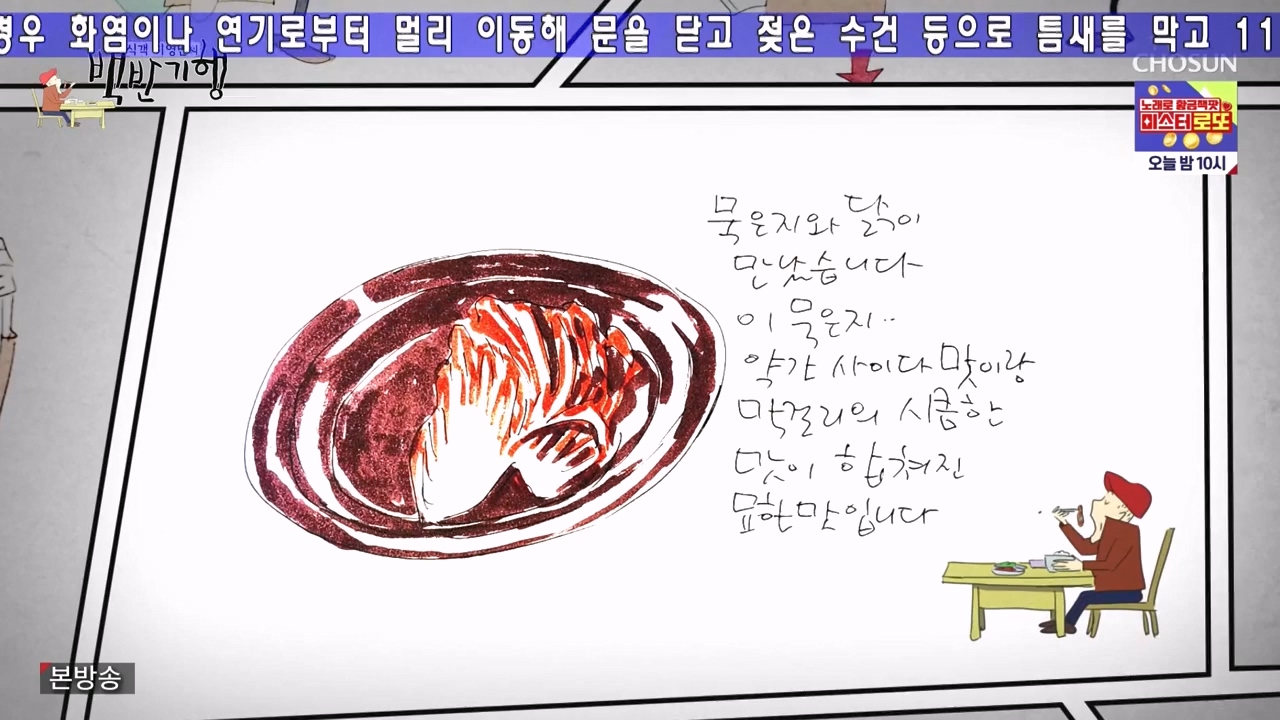 경우 화염이나 연기로부터 멀리 이동해 문을 닫고 젖은 수건 등으로 틈새를 막고 11
식객 허영만의
백반기행
CHOSUN
노래로 황금백팟
미스터로또
오늘 밤 10시
묵은지와 닭이
만났습니다
이 묵은지..
약간 사이다 맛이랑
막걸리의 시큼한
맛이 합쳐진
묘한 맛입니다
본방송